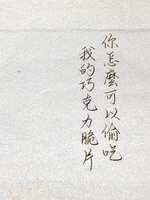 你怎麼可以偷吃
我的巧克力脆片